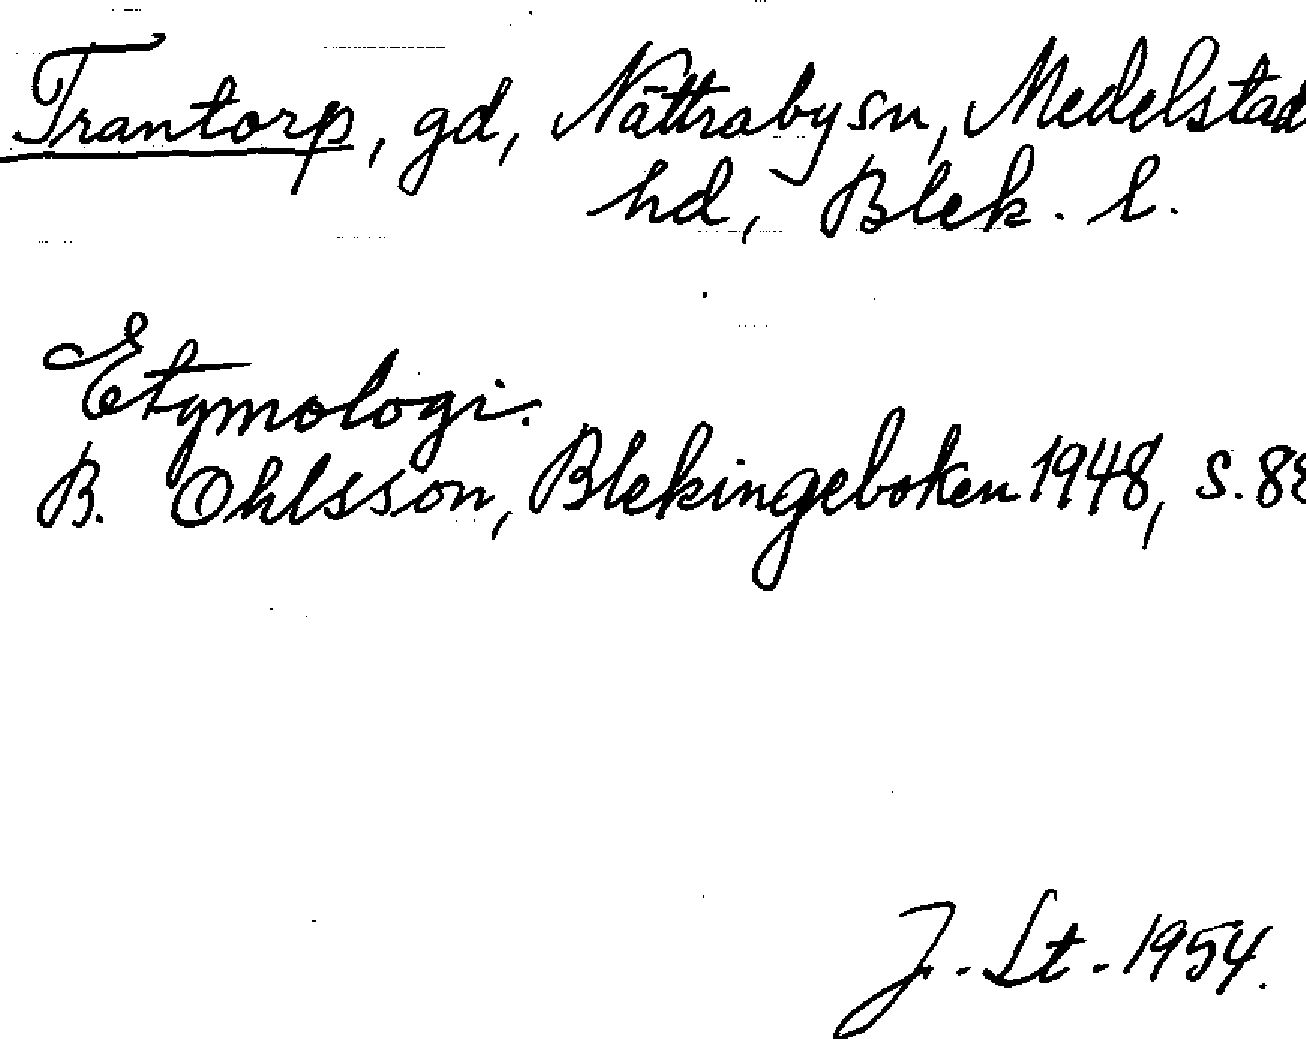 Trantorp, gd, Nättraby sn, Medelstad
hd, Blek. l.
Etymologi.
B. Ohlsson, Blekingeboken 1948, s. 88
J. Lt. 1954.